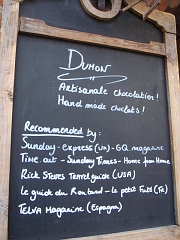 Dumon
Artisanale chocolatier!
Hand made choclats!
Recommended by:
Sunday-express (UK) - GQ magazine
Time-out - Sunday Times - Home from Home
Rick Steves Travel guide (USA)
Le guide du Routard - le petit Futé (Fr)
TELVA Magazine (Espagna)